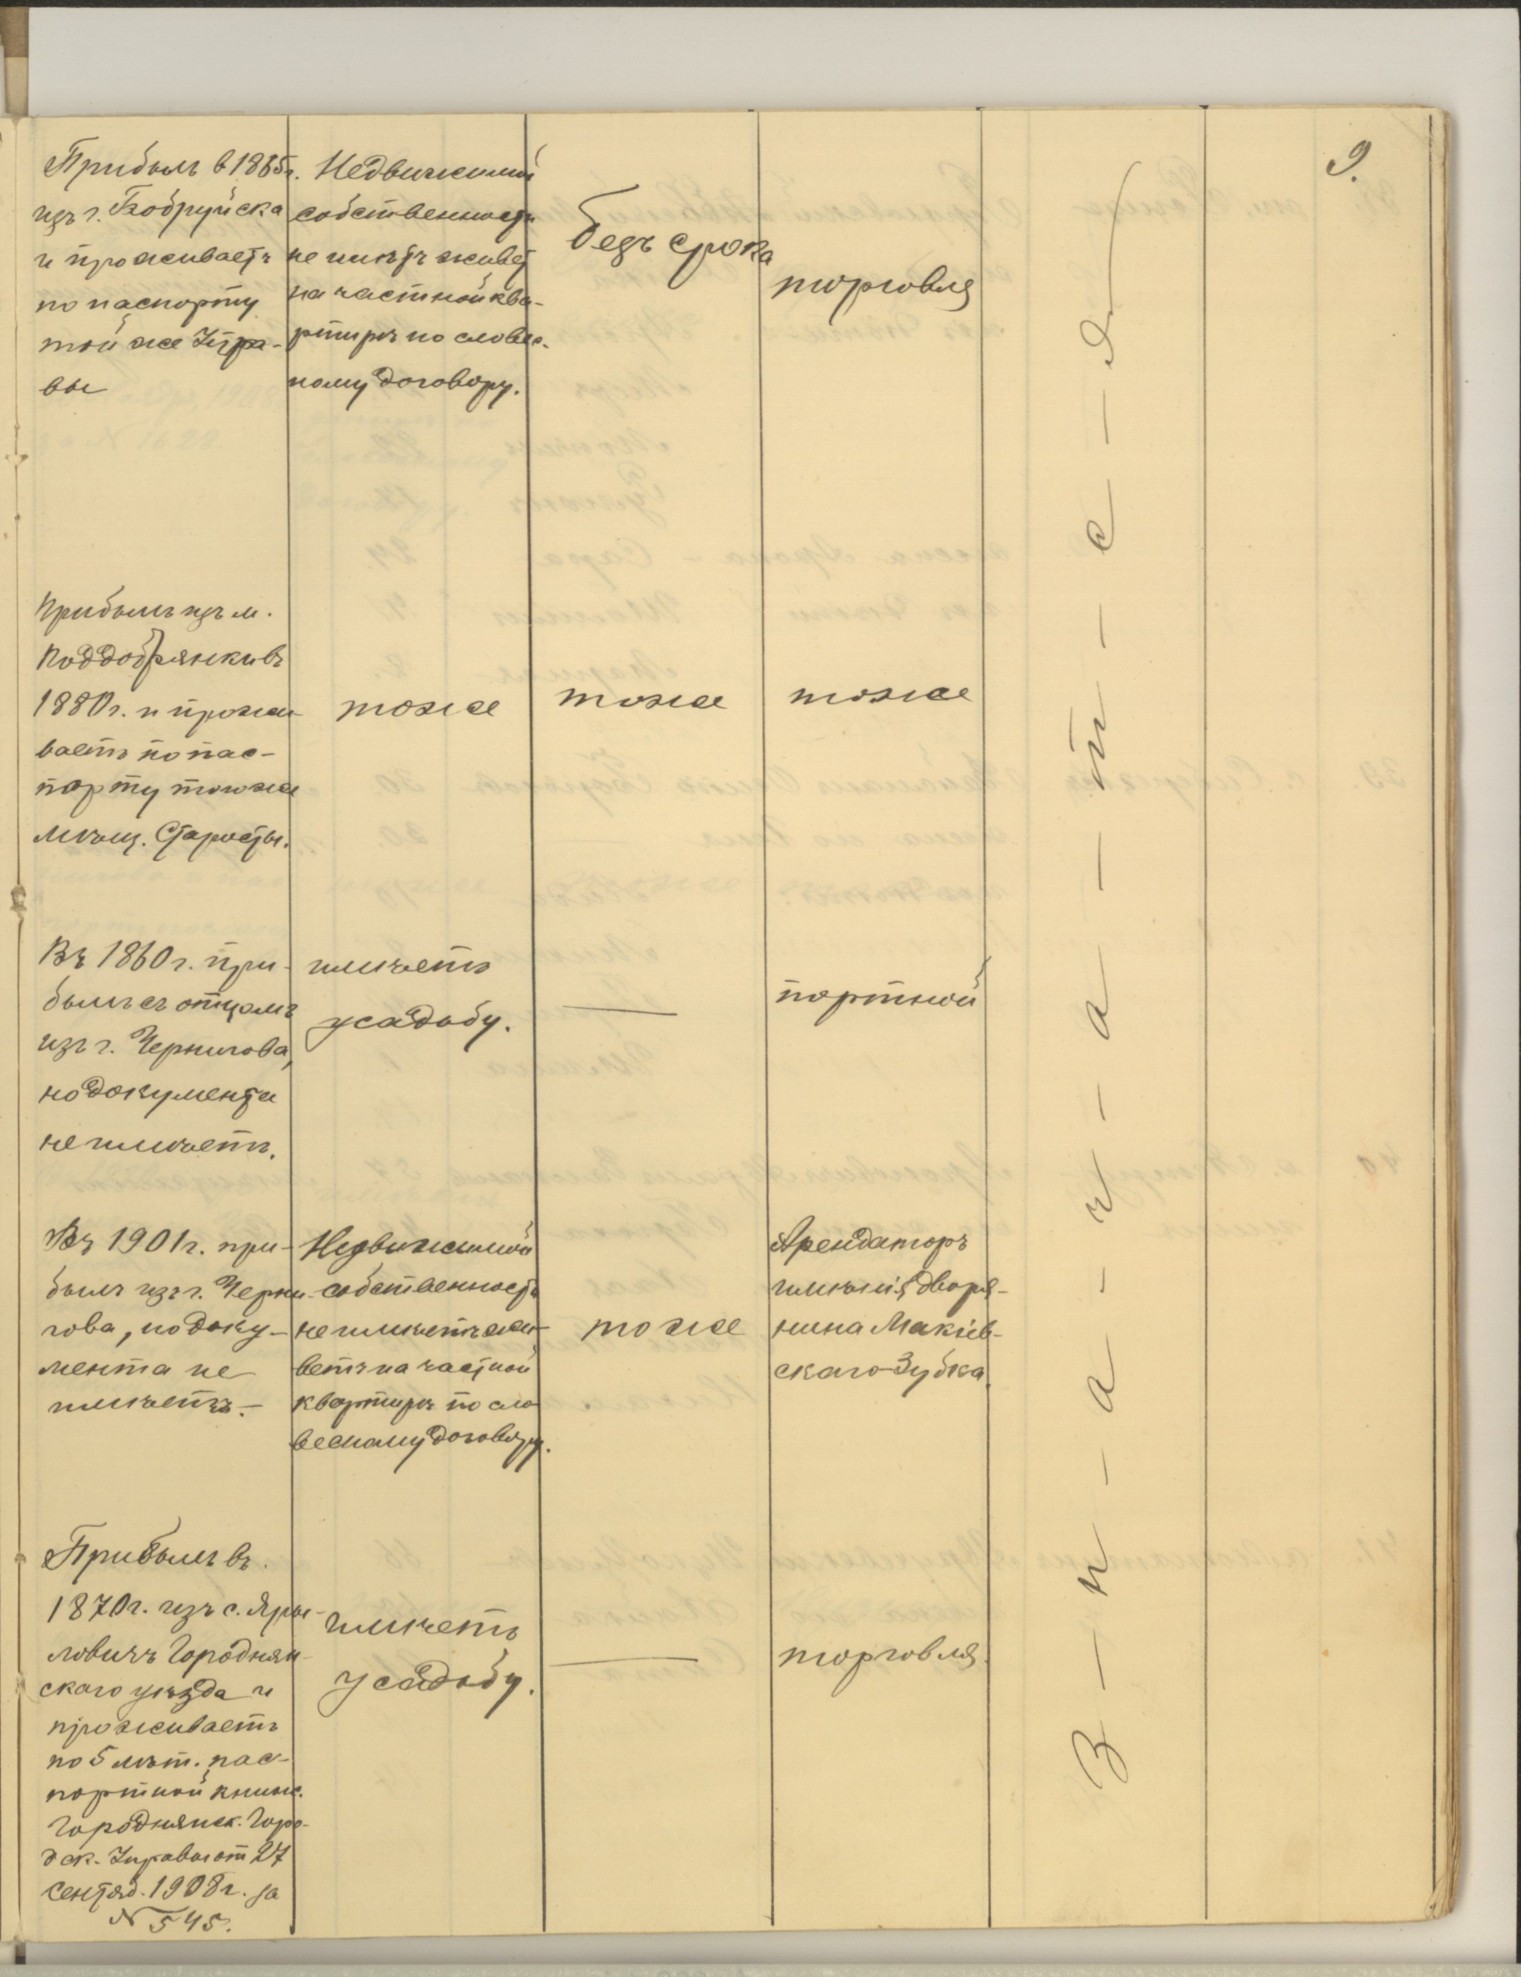 9.
Прибылъ в 1865г.
изъ г. Бобруйска
и проживаетъ
по паспорту
той же Упра-
вы
Недвижимой
собственности
не имѣтъ живет
на частной ква-
ртирѣ по словес-
ному договору.
безъ срока
торговля
Прибылъ изъ м.
Поддобрянки въ
1880г. и прожи-
ваетъ по пас-
порту тогоже
мѣщ. Старосты.
тоже
тоже
тоже
Въ 1860г. при-
былъ съ отцомъ
изъ г. Чернигова,
но документа
не имѣетъ.
имѣетъ
усадьбу.
—
портной
Въ 1901г. при-
былъ изъ г. Черни-
гова, но доку-
мента не
имѣетъ.-
Недвижимой
собственности
не имѣетъ жи-
ветъ на частной
квартирѣ по сло
весному договору.
тоже
Арендаторъ
имѣнія дворя-
нина Макіев-
скаго-Зубка.
Прибылъ въ
1870г. изъ с. Яры-
ловичъ Городнян-
скаго уѣзда и
проживаетъ
по 5 лѣт. пас-
портной книж.
Городнянск. Горо-
дск. Управы от 27
сентяб. 1908г. за
№ 545.
имѣетъ
усадьбу.
—
торговля.
З-н-а-ч-а-т-с-я